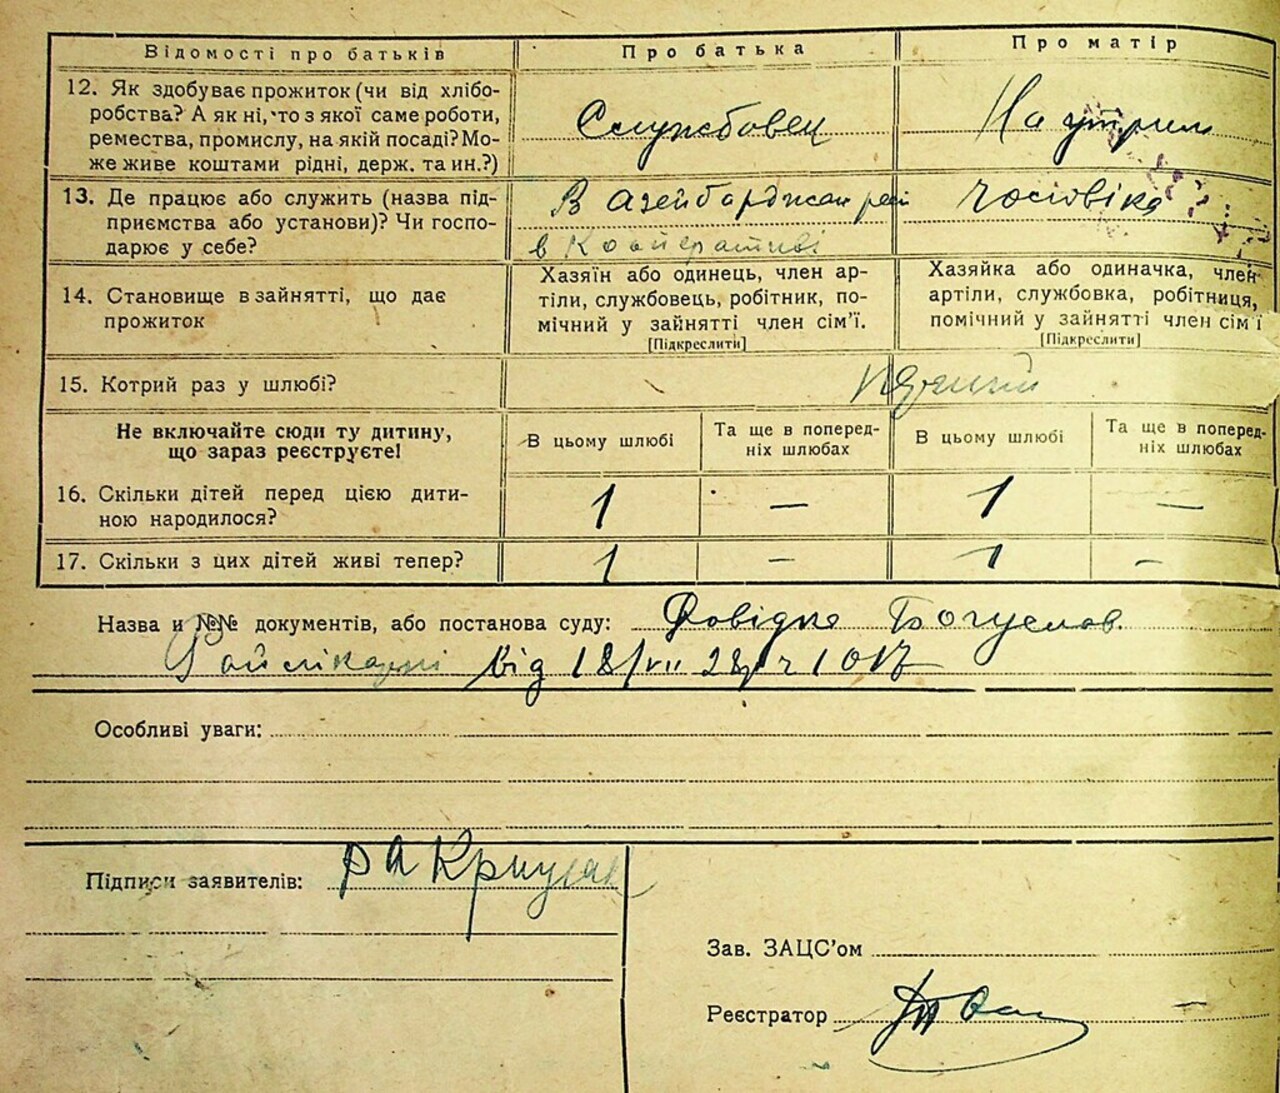 Відомості про батьків Про батька Про матір
12. Як здобуває прожиток (чи від хлібо-
робства? А як ні, то з якої саме роботи,
ремества, промислу, на якій посаді? Мо-
же живе коштами рідні, держ. та ин.?)
Службовец
На утрим
13. Де працює або служить (назва під-
приємства або установи)? Чи госпо-
дарює у себе?
В Азейбарджан
в Кооперативі
чоловіка
14. Становище в зайнятті, що дає
прожиток
Хазяїн або одинець, член ар-
тіли, службовець, робітник, по-
мічний у зайнятті член сім’ї.
[Підкреслити]
Хазяйка або одиначка, член
артіли, службовка, робітниця,
помічний у зайнятті член сім’ї
[Підкреслити]
15. Котрий раз у шлюбі?
Не включайте сюди ту дитину,
що зараз реєструєте!
В цьому шлюбі
Та ще в поперед-
ніх шлюбах
В цьому шлюбі
Та ще в поперед-
ніх шлюбах
16. Скільки дітей перед цією дити-
ною народилося?
1 — 1 —
17. Скільки з цих дітей живі тепер?
1 — 1 —
Назва и №№ документів, або постанова суду: Довідка Богуслав.
Райлікарні від 18/VII 28р ч 1017
Особливі уваги:
Підписи заявителів:
Зав. ЗАЦС’ом
Реєстратор